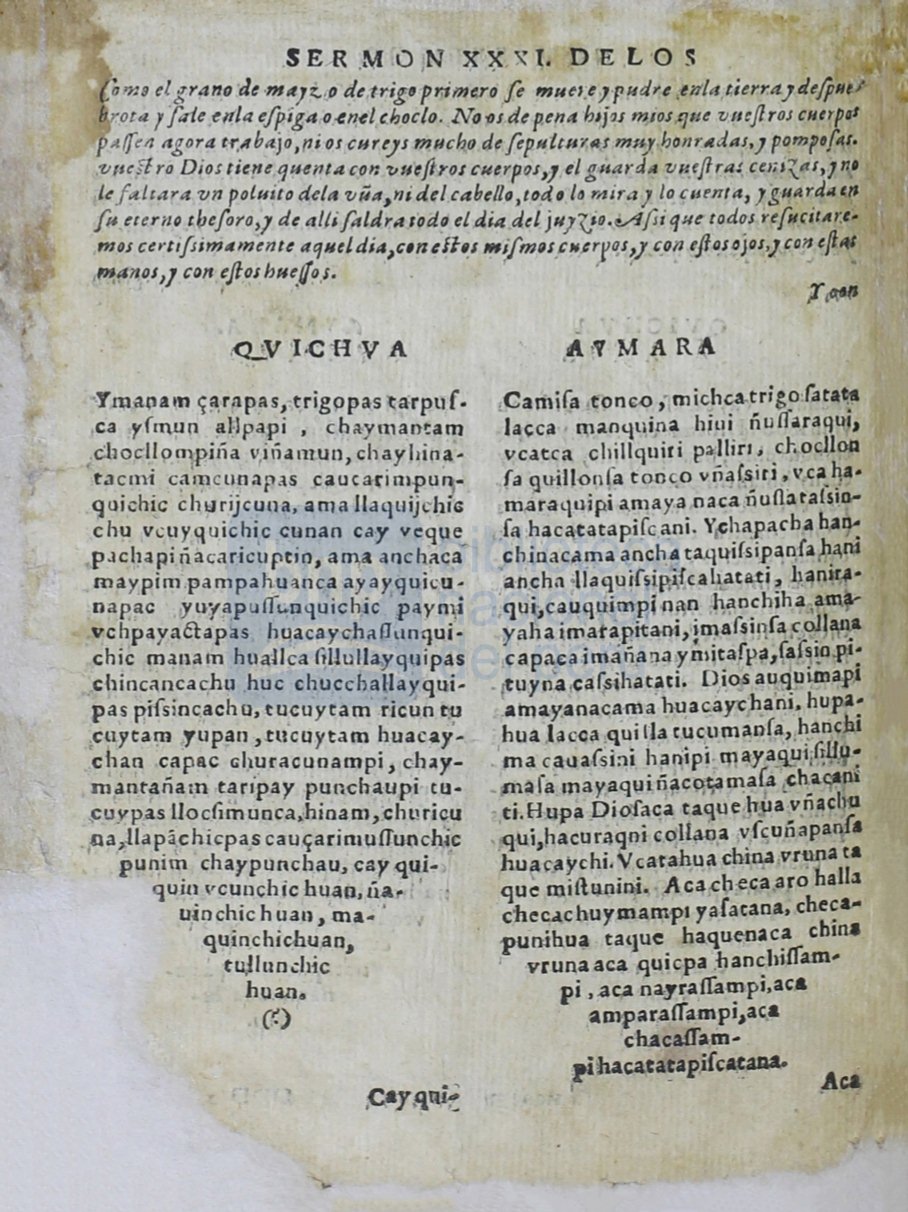 SERMON XXXI. DELOS
Como el grano de mayz, o de trigo primero se muere y pudre enla tierra y despues
brota y sale enla espiga o enel choclo. No os de pena hijos mios que vuestros cuerpos
passen agora trabajo, ni os cureys mucho de sepulturas muy honradas, y pomposas.
vuestro Dios tiene quenta con vuestros cuerpos, y el guarda vuestras cenizas, y no
le faltara vn poluito dela vña, ni del cabello, todo lo mira y lo cuenta, y guarda en
su eterno thesoro, y de alli saldra todo el dia del juyzio. Assi que todos resucitare-
mos certissimamente aquel dia, con estos mismos cuerpos, y con estos ojos, y con estas
manos, y con estos huessos.
Y aon
QVICHVA
Ymanam çarapas, trigopas tarpus-
ca ysmun allpapi , chaymantam
chocllompiña viñamun, chayhina-
tacmi camcunapas caucarimpun-
quichic churijcuna, ama llaquijchic
chu vcuyquichic cunan cay veque
pachapi ñacaricuptin, ama anchaca
maypim pampahuanca ayayquicu-
napac yuyapussunquichic paymi
vchpayactapas huacaychassunqui-
chic manam huallca sillullayquipas
chincancachu huc chucchallayqui-
pas pissincachu, tucuytam ricun tu
cuytam yupan, tucuytam huacay-
chan capac churacunampi, chay-
mantañam taripay punchaupi tu-
cuypas llocsimunca, hinam, churicu
na, llapãchicpas cauçarimussunchic
punim chaypunchau, cay qui-
quin vcunchic huan, ña-
uinchic huan, ma-
quinchichuan,
tullunchic
huan.
(?)
Cay qui-
AYMARA
Camisa tonco, michca trigo satata
lacca manquina hiui ñussaraqui,
vcatca chillquiti palliri, chocllon
sa quillonsa tonco vñassiri, vca ha-
maraquipi amaya naca ñuslatassin-
sa hacatatapiscani. Ychapacha han-
chinacama ancha taquissipansa hani
ancha llaquissipiscahatati, hanira-
qui, cauquimpi nan hanchiha ama-
yaha imatapitani, imassinsa collana
capaca imañana ymitaspa, sassin pi-
tuyna cassihatati. Dios auquimapi
amayanacama huacaychani, hupa-
hua lacca quilla tucumansa, hanchi
ma cauassini hanipi mayaqui sillu-
masa mayaqui ñacotamasa chacani
ti. Hupa Diosaca taque hua vñachu
qui, hacuraqni collana vscuñapansa
huacaychi. Vcatahua china vruna ta
que mistunini. Aca checa aro halla
checachuymampi yasatana, checa-
punihua taque haquenaca china
vruna aca quicpa hanchissam-
pi, aca nayrassampi, aca
amparassampi, aca
chacassam-
pi hacatatapiscatana.
Aca